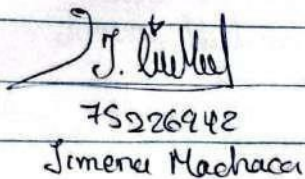 75226942
Jimena Machaca